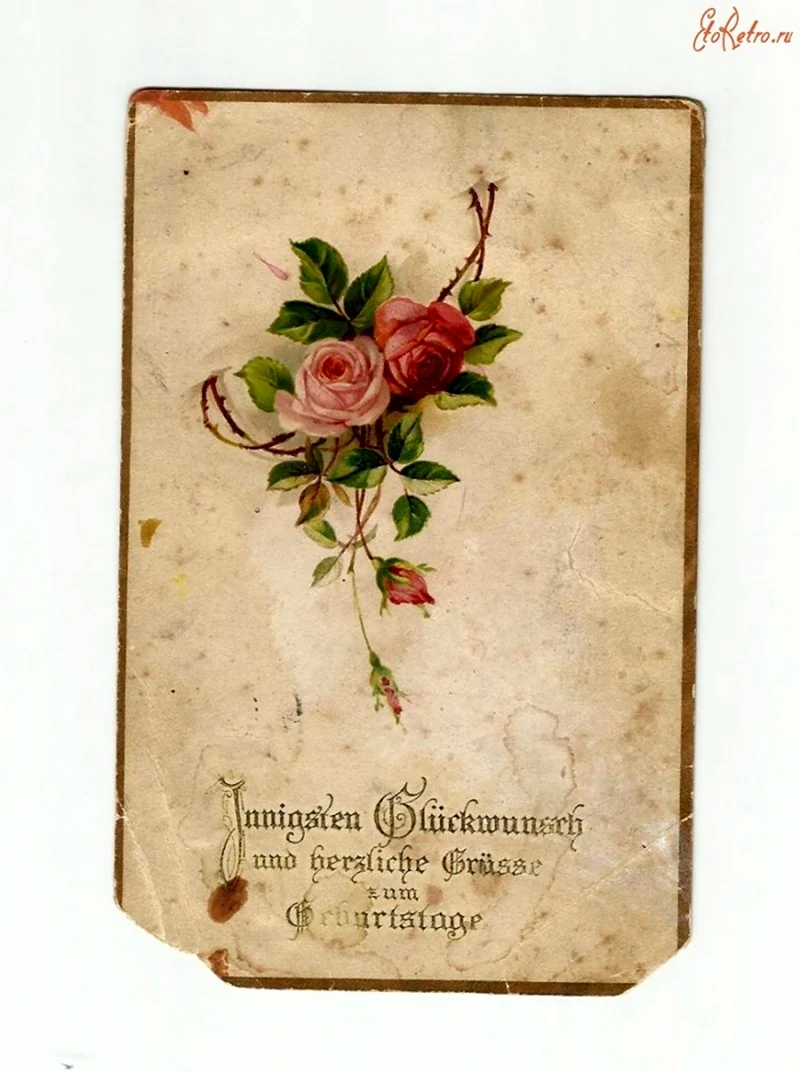 EtoRetro.ru
Innigsten Glückwunsch
und herzliche Grüsse
zum
Geburtstage